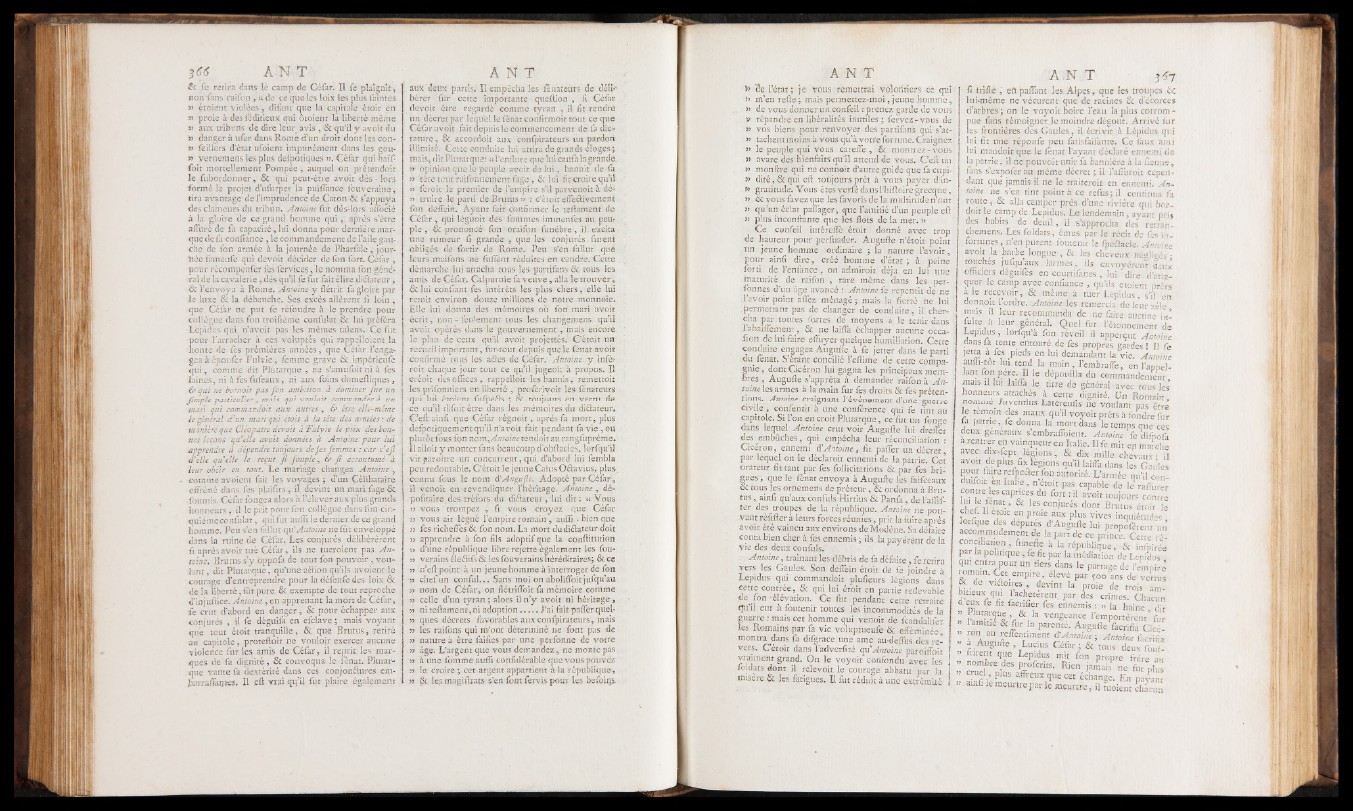 366 ANT ANT
& ſe retira dans le camp de Céſar. Il ſe plaignit,
non ſans raiſon, « de ce que les loix les plus ſaintes
» étoient violées, diſant que la capitale étoit en
» proie à des ſéditieux qui ôtoient la liberté même
» aux tribuns de dire leur avis, & qu'il y avoit du
» danger à uſer dans Rome d'un droit dont les con-
» ſeillers d'état uſoient impunément dans les gou-
» vernemens les plus deſpotiques ». Céſar qui haïſ-
ſoit mortellement Pompée, auquel on prétendoit
le ſubordonner, & qui peut-être avoit dès-lors
formé le projet d'uſurper la puiſſance ſouveraine,
tira avantage de l'imprudence de Caton & s'appuya
des clameurs du tribun. Antoine fut dès-lors aſſocié
à la gloire de ce grand homme qui, après s'être
aſſuré de ſa capacité, lui donna pour dernière mar-
que de ſa confiance, le commandement de l'aile gau-
che de ſon armée à la journée de Pharſale, jour-
née fameuſe qui devoit décider de ſon ſort. Céſar,
pour récompenſer ſes ſervices, le nomma ſon géné-
ral de la cavalerie, dès qu'il ſe fut fait élire dictateur,
& l'envoya à Rome. Antoine y flétrit ſa gloire par
le luxe & la débauche. Ses excès allèrent ſi loin,
que Céſar ne put ſe réſoudre à le prendre pour
collègue dans ſon troiſième conſulat & lui préféra
Lepidus qui n'avoit pas les mêmes talens. Ce fut
pour l'arracher à ces voluptés qui rappelloient la
honte de ſes premières années, que Céſar l'enga-
gea à épouſer Fulvie, femme grave & impérieuſe
qui, comme dit Plutarque, ne s'amuſoit ni à ſes
laines, ni à ſes fuſeaux, ni aux ſoins domeſtiques,
& qui ne bornoit pas ſon ambition à dominer ſur un
ſimple particulier, mais qui vouloit commander à un
mari qui commandoit aux autres, & être elle-même
le général d'un mari qui étoit à la tête des armées : de
manière que Cléopatre devoit à Fulvie le prix des bon-
nes leçons qu'elle avoit données à Antoine pour lui
apprendre à dépendre toujours de ſes femmes : car c'eſt
d'elle qu'elle le reçut ſi ſouple, & ſi accoutumé à
leur obéir en tout. Le mariage changea Antoine,
comme avoient fait les voyages ; d'un Célibataire
effréné dans ſes plaiſirs, il devint un mari ſage &
ſoumis. Céſar ſongea alors à l'élever aux plus grands
honneurs, il le prit pour ſon collègue dans ſon cin-
quième conſulat, qui fut auſſi le dernier de ce grand
homme. Peu s'en fallut qu'Antoine ne fût enveloppé
dans la ruine de Céſar. Les conjurés délibérèrent
ſi après avoir tué Céſar, ils ne tueroient pas An-
toine. Brutus s'y oppoſa de tout ſon pouvoir, vou-
lant, dit Plutarque, qu'une action qu'ils avoient le
courage d'entreprendre pour la défenſe des loix &
de la liberté, fût pure & exempte de tout reproche
d'injuſtice. Antoine, en apprenant la mort de Céſar,
ſe crut d'abord en danger, & pour échapper aux
conjurés, il ſe déguiſa en eſclave ; mais voyant
que tout étoit tranquille, & que Brutus, retiré
au capitole, proteſtoit ne vouloir exercer aucune
violence ſur les amis de Céſar, il reprit les mar-
ques de ſa dignité, & convoqua le ſénat. Plutar-
que vante ſa dextérité dans ces conjonctures em-
barraſſantes. Il eſt vrai qu'il ſut plaire également
aux deux partis. Il empêcha les ſénateurs de déli-
bérer ſur cette importante queſtion, ſi Céſar
devoit être regardé comme tyran, il fit rendre
un décret par lequel le ſénat confirmoit tout ce que
Céſar avoit fait depuis le commencement de ſa dic-
tature, & accordoit aux conſpirateurs un pardon
illimité. Cette conduite lui attira de grands éloges ;
mais, dit Plutarque, « l'enflure que lui cauſa la grande
» opinion que le peuple avoit de lui, bannit de ſa
» tête tout raiſonnement ſage, & lui fit croire qu'il
» ſeroit le premier de l'empire s'il parvenoit à dé-
» truire le parti de Brutus » : c'étoit effectivement
ſon deſſein. Ayant fait confirmer le teſtament de
Céſar, qui léguoit des ſommes immenſes au peu-
ple, & prononcé ſon oraiſon funèbre, il excita
une rumeur ſi grande, que les conjurés furent
obligés de ſortir de Rome. Peu s'en fallut que
leurs maiſons ne fuſſent réduites en cendre. Cette
démarche lui attacha tous les partiſans & tous les
amis de Céſar. Calpurnie ſa veuve, alla le trouver,
& lui confiant ſes intérêts les plus chers, elle lui
remit environ douze millions de notre monnoie.
Elle lui donna des mémoires où ſon mari avoit
écrit, non-ſeulement tous les changemens qu'il
avoit opérés dans le gouvernement, mais encore
le plan de ceux qu'il avoit projettés. C'étoit un
recueil important, ſur-tout depuis que le ſénat avoit
confirmé tous les actes de Céſar. Antoine y inſé-
roit chaque jour tout ce qu'il jugeoit à propos. Il
créoit des offices, rappelloit les bannis, remettoit
les priſonniers en liberté, proſcrivoit les ſénateurs
qui lui étoient ſuſpects ; & toujours en vertu de
ce qu'il diſoit être dans les mémoires du dictateur.
C'eſt ainſi que Céſar régnoit, après ſa mort, plus
deſpotiquement qu'il n'avoit fait pendant ſa vie, ou
plutôt ſous ſon nom, Antoine tendoit au rang ſuprême.
Il alloit y monter ſans beaucoup d'obſtacles, lorſqu'il
vit paroître un concurrent, qui d'abord lui ſembla
peu redoutable. C'étoit le jeune Caïus Octavius, plus
connu ſous le nom d'Auguſte. Adopté par Céſar,
il venoit en revendiquer l'héritage. Antoine, dé-
poſitaire des tréſors du dictateur, lui dit : « Vous
» vous trompez, ſi vous croyez que Céſar
» vous ait légué l'empire romain, auſſi-bien que
» ſes richeſſes & ſon nom. La mort du dictateur doit
» apprendre à ſon fils adoptif que la conſtitution
» d'une république libre rejette également les ſou-
» verains électifs & les ſouverains héréditaires; & ce
» n'eſt point à un jeune homme à interroger de ſon
» chef un conſul... Sans moi on aboliſſoit juſqu'au
» nom de Céſar, on flétriſſoit ſa mémoire comme
» celle d'un tyran ; alors il n'y avoit ni héritage,
» ni teſtament, ni adoption..... J'ai fait paſſer quel-
» ques décrets favorables aux conſpirateurs, mais
» les raiſons qui m'ont déterminé ne ſont pas de
» nature à être ſaiſies par une perſonne de votre
» âge. L'argent que vous demandez, ne monte pas
» à une ſomme auſſi conſidérable que vous pouvez
» le croire ; cet argent appartient à la république,
» & les magiſtrats s'en ſont ſervis pour les beſoins
ANT ANT 367
» de l'état ; je vous remettrai volontiers ce qui
» m'en reſte ; mais permettez-moi, jeune homme,
» de vous donner un conſeil : prenez garde de vous
» répandre en libéralités inutiles ; ſervez-vous de
» vos biens pour renvoyer des partiſans qui s'at-
» tachent moins à vous qu'à votre fortune. Craignez
» le peuple qui vous careſſe, & montrez-vous
» avare des bienfaits qu'il attend de vous. C'eſt un
» monſtre qui ne connoît d'autre guide que ſa cupi-
» dité, & qui eſt toujours prêt à vous payer d'in-
» gratitude. Vous êtes verſé dans l'hiſtoire grecque,
» & vous ſavez que les favoris de la multitude n'ont
» qu'un éclat paſſager, que l'amitié d'un peuple eſt
» plus inconſtante que les flots de la mer. »
Ce conſeil intéreſſé étoit donné avec trop
de hauteur pour perſuader. Auguſte n'étoit point
un jeune homme ordinaire ; la nature l'avoit,
pour ainſi dire, créé homme d'état ; à peine
ſorti de l'enfance, on admiroit déja en lui une
maturité de raiſon, rare même dans les per-
ſonnes d'un âge avancé : Antoine ſe repentit de ne
l'avoir point aſſez ménagé ; mais ſa fierté ne lui
permettant pas de changer de conduite, il cher-
cha par toutes ſortes de moyens à le tenir dans
l'abaiſſement, & ne laiſſa échapper aucune occa-
ſion de lui faire eſſuyer quelque humiliation. Cette
conduite engagea Auguſte à ſe jetter dans le parti
du ſénat. S'étant concilié l'eſtime de cette compa-
gnie, dont Cicéron lui gagna les principaux mem-
bres, Auguſte s'apprêta à demander raiſon à An-
toine les armes à la main ſur ſes droits & ſes préten-
tions. Antoine craignant l'événement d'une guerre
civile, conſentit à une conférence qui ſe tint au
capitole. Si l'on en croit Plutarque, ce fut un ſonge
dans lequel Antoine crut voir Auguſte lui dreſſer
des embûches, qui empêcha leur réconciliation :
Cicéron, ennemi d'Antoine, fit paſſer un décret,
par lequel on le déclaroit ennemi de la patrie. Cet
orateur fit tant par ſes ſollicitations & par ſes bri-
gues, que le ſénat envoya à Auguſte les faiſceaux
& tous les ornemens de préteur, & ordonna à Bru-
tus, ainſi qu'aux conſuls Hirtius & Panſa, de l'aſſiſ-
ter des troupes de la république. Antoine ne pou-
vant réſiſter à leurs forces réunies, prit la fuite après
avoir été vaincu aux environs de Modène. Sa défaite
coûta bien cher à ſes ennemis ; ils la payèrent de la
vie des deux conſuls.
Antoine, traînant les débris de ſa défaite, ſe retira
vers les Gaules. Son deſſein étoit de ſe joindre à
Lepidus qui commandoit pluſieurs légions dans
cette contrée, & qui lui étoit en partie redevable
de ſon élévation. Ce fut pendant cette retraite
qu'il eut à ſoutenir toutes les incommodités de la
guerre : mais cet homme qui venoit de ſcandaliſer
les Romains par ſa vie voluptueuſe & efféminée,
montra dans ſa diſgrace une ame au-deſſus des re-
vers. C'étoit dans l'adverſité qu'Antoine paroiſſoit
vraiment grand. On le voyoit confondu avec les
ſoldats dont il relevoit le courage abbatu par la
misère & les fatigues. Il fut réduit à une extrémité
ſi triſte, en paſſant les Alpes, que ſes troupes &
lui-même ne vécurent que de racines & d'écorces
d'arbres ; on le voyoit boire l'eau la plus corrom-
pue ſans témoigner le moindre dégoût. Arrivé ſur
les frontières des Gaules, il écrivit à Lépidus qui
lui fit une réponſe peu ſatisfaiſante. Ce faux ami
lui manda que le ſénat l'ayant déclaré ennemi de
la patrie, il ne pouvoit unir ſa bannière à la ſienne,
ſans s'expoſer au même décret ; il l'aſſuroit cepen-
dant que jamais il ne le traiteroit en ennemi. An-
toine ne s'en tint point à ce refus ; il continua ſa
route, & alla camper près d'une rivière qui bor-
doit le camp de Lepidus. Le lendemain, ayant pris
des habits de deuil, il s'approcha des retran-
chemens. Les ſoldats, émus par le récit de ſes in-
fortunes, n'en purent ſoutenir le ſpectacle. Antoine
avoit la barbe longue, & les cheveux négligés ;
touchés juſqu'aux larmes, ils envoyèrent deux
officiers déguiſés en courtiſanes, lui dire d'atta-
quer le camp avec confiance, qu'ils étoient prêts
à le recevoir, & même à tuer Lepidus, s'il en
donnoit l'ordre. Antoine les remercia de leur zèle,
mais il leur recommanda de ne faire aucune in-
ſulte à leur général. Quel fut l'étonnement de
Lepidus, lorſqu'à ſon reveil il apperçut Antoine
dans ſa tente entouré de ſes propres gardes ! Il ſe
jetta à ſes pieds en lui demandant la vie. Antoine
auſſi-tôt lui tend la main, l'embraſſe, en l'appel-
lant ſon père. Il le dépouilla du commandement,
mais il lui laiſſa le titre de général avec tous les
honneurs attachés à cette dignité. Un Romain,
nommé Juventius Laterenſis ne voulant pas être
le témoin des maux qu'il voyoit prêts à fondre ſur
ſa patrie, ſe donna la mort dans le temps que ces
deux généraux s'embraſſoient. Antoine ſe diſpoſa
à rentrer en vainqueur en Italie. Il ſe mit en marche
avec dix-ſept légions, & dix mille chevaux ; il
avoit de plus ſix légions qu'il laiſſa dans les Gaules
pour faire reſpecter ſon autorité. L'armée qu'il con-
duiſoit en Italie, n'étoit pas capable de le raſſurer
contre les caprices du ſort : il avoit toujours contre
lui le ſénat, & les conjurés dont Brutus étoit le
chef. Il étoit en proie aux plus vives inquiétudes,
lorſque des députés d'Auguſte lui propoſèrent un
accommodement de la part de ce prince. Cette ré-
conciliation, funeſte à la république, & inſpirée
par la politique, ſe fit par la médiation de Lepidus,
qui entra pour un tiers dans le partage de l'empire
romain. Cet empire, élevé par 500 ans de vertus
& de victoires, devint la proie de trois am-
bitieux qui l'achetèrent par des crimes. Chacun
d'eux ſe fit ſacrifier ſes ennemis : « la haine, dit
» Plutarque, & la vengeance l'emportèrent ſur
» l'amitié & ſur la parenté. Auguſte ſacrifia Cicé-
» ron au reſſentiment d'Antoine ; Antoine ſacrifia
» à Auguſte, Lucius Céſar ; & tous deux ſouf-
» frirent que Lepidus mît ſon propre frère au
» nombre des proſcrits. Rien jamais ne fut plus
» cruel, plus affreux que cet échange. En payant
» ainſi le meurtre par le meurtre, il tuoient chacun